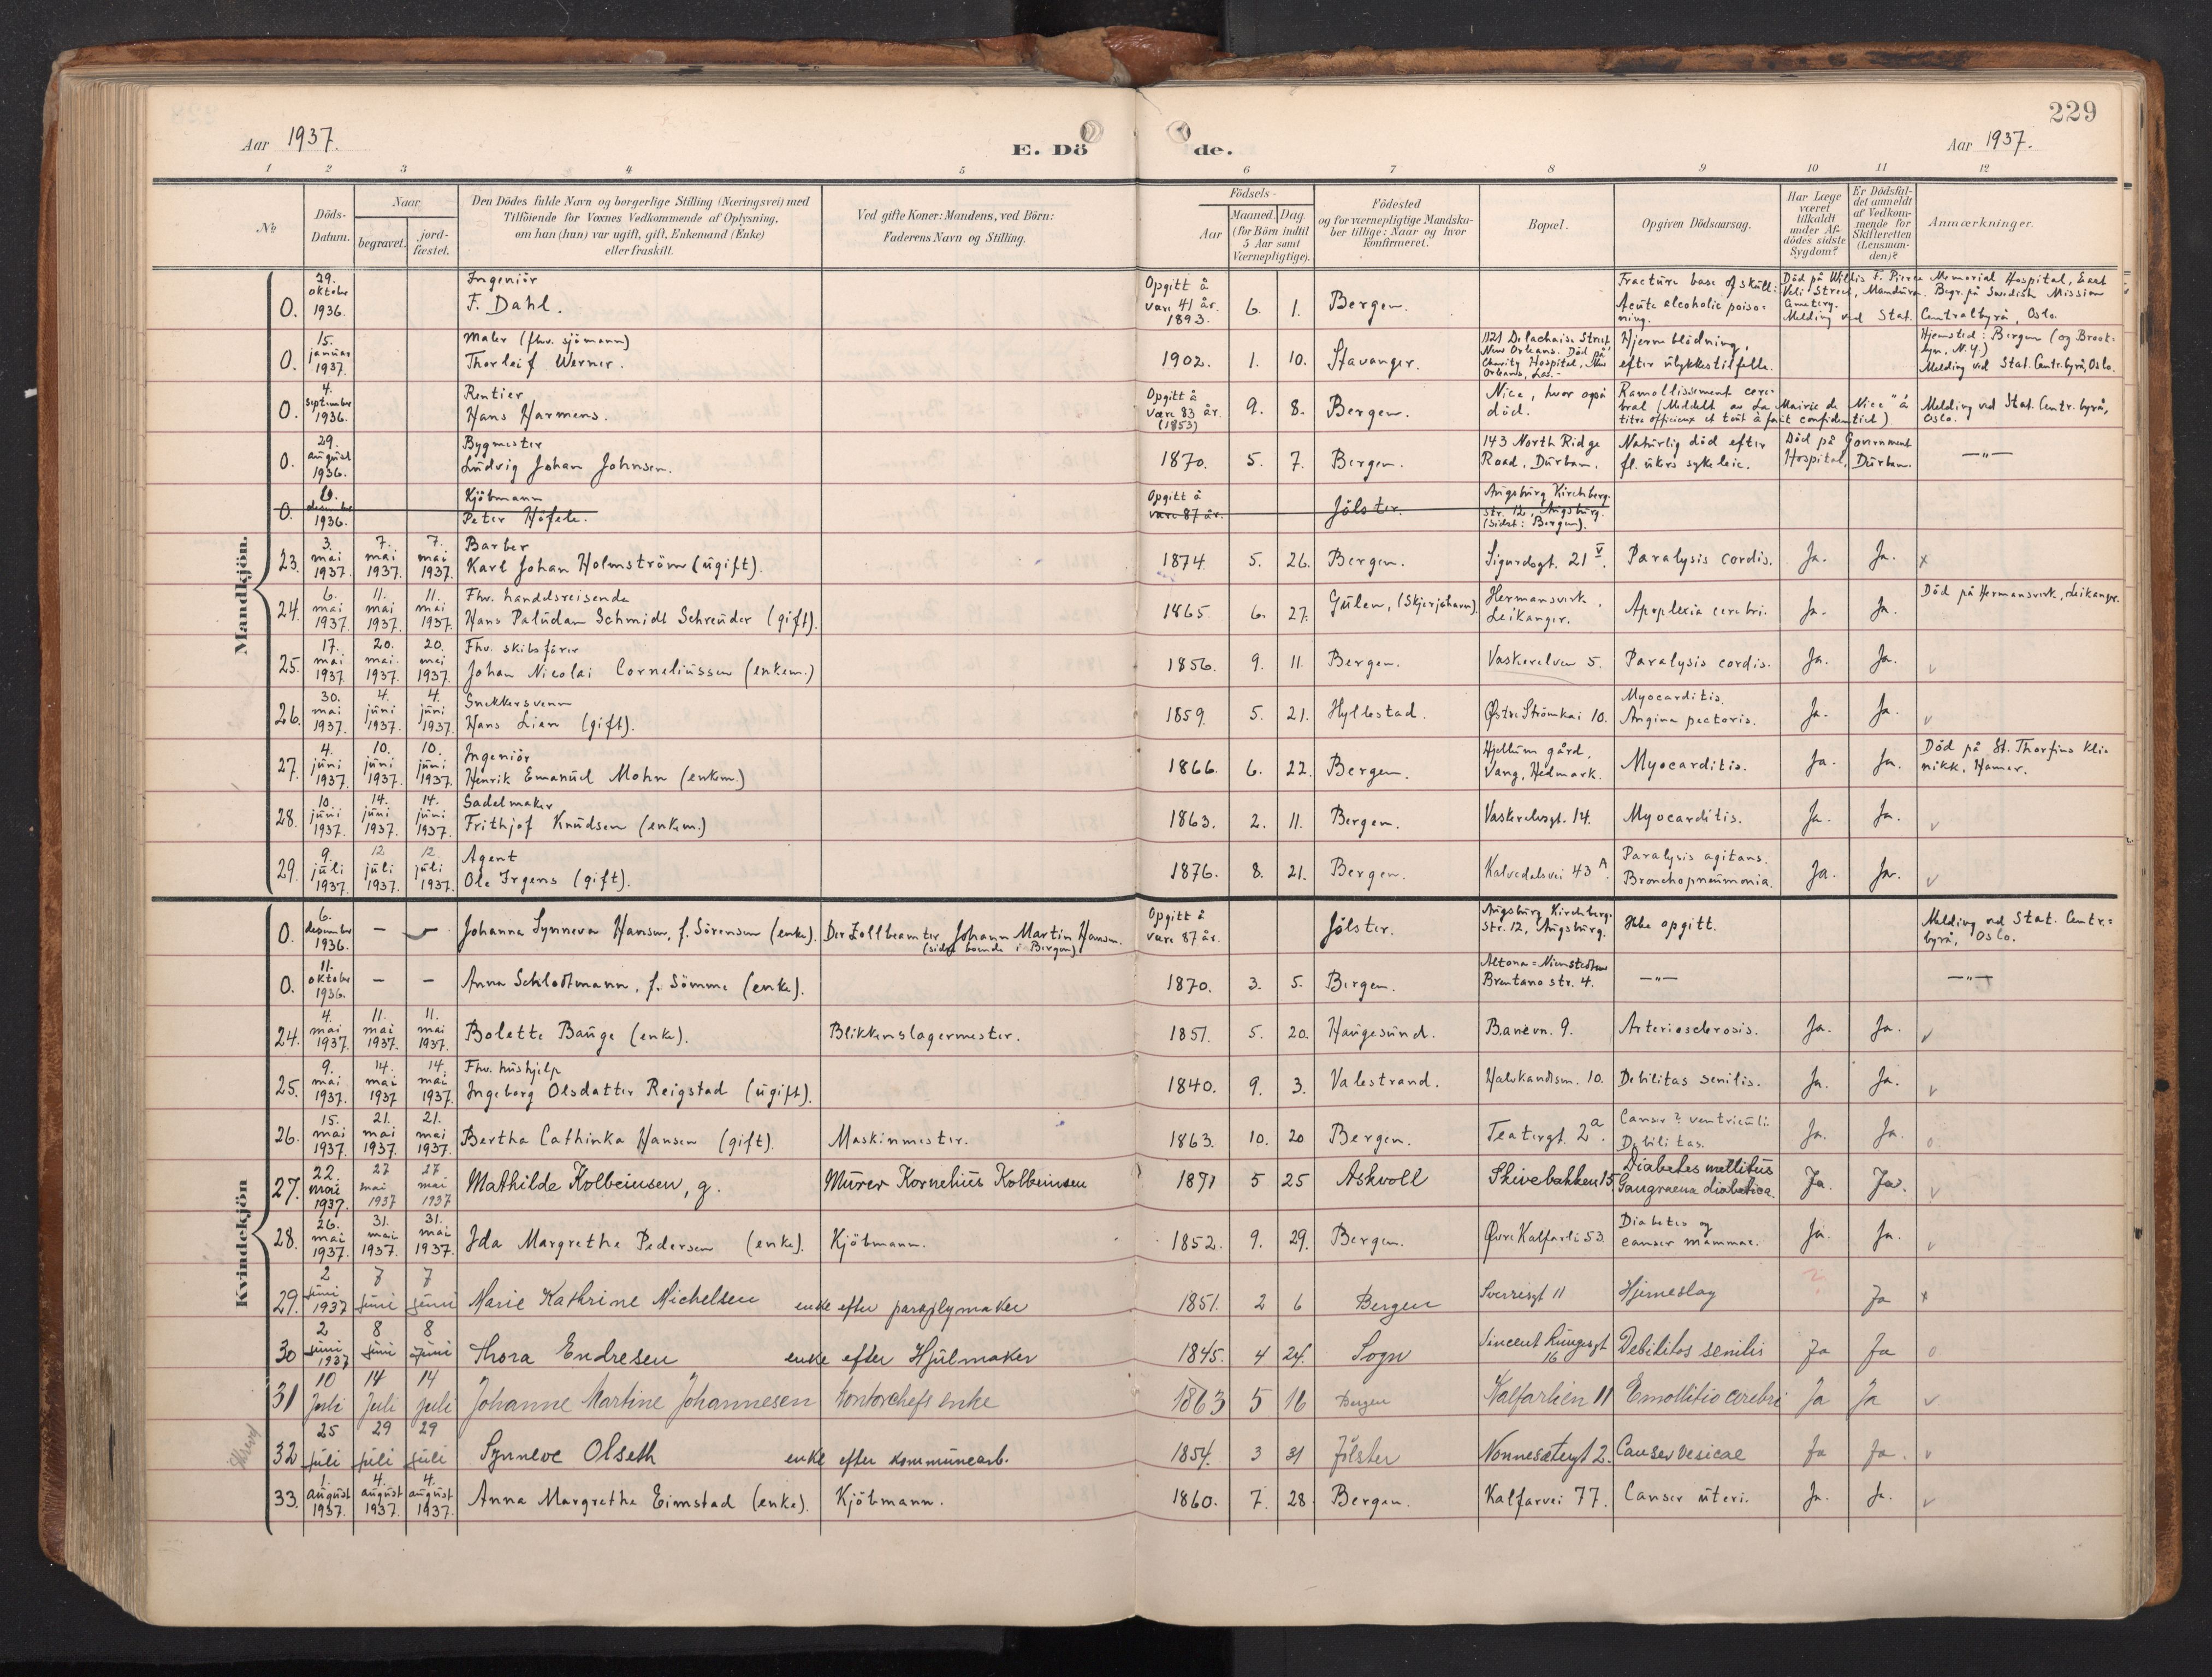 229
Aar 1937.
E. Dö de.
Aar 1937.
1 2 3 4 5 6 7 8 9 10 11 12
№
Döds-
Datum.
Naar
begravet.
jord-
fæstet.
Den Dödes fulde Navn og borgerlige Stilling (Næringsvei) med
Tilföiende for Voxnes Vedkommende af Oplysning,
om han (hun) var ugift, gift, Enkemand (Enke)
eller fraskilt.
Ved gifte Koner: Mandens, ved Börn:
Faderens Navn og Stilling.
Födsels-
Aar
Maaned. Dag.
(for Börn indtil
5 Aar samt
Værnepligtige).
Födested
og for værnepligtige Mandska-
ber tillige: Naar og hvor
Konfirmeret.
Bopæl.
Opgiven Dödsaarsag.
Har Læge
været
tilkaldt
under Af-
dödes sidste
Sygdom?
Er Dödsfal-
det anmeldt
af Vedkom-
mende for
Skifteretten
(Lensman-
den)?
Anmærkninger.
Mandkjön.
0. 29. oktober 1936. Ingeniör
F. Dahl. Opgitt å være 41 år. 1893. 6. 1. Bergen. Fracture base of skull: Acute alcoholic poisoning. Död på Willis F. Pierce Memorial Hospital, East
Begr. på Swedish Mission Cemetery.
Melding ved Stat. Centralbyrå, Oslo.
0. 15. januar 1937. Maler (fhv. sjömann)
Thorleif Werner. 1902. 1. 10. Stavanger. 1121 Delachaise Street New Orleans. Död på Charity Hospital, New Orleans, La. Hjerneblödning, efter ulykkestilfelle. Hjemsted: Bergen (og Brooklyn, N.Y.)
Melding ved Stat. Centr.byrå, Oslo.
0. 4. september 1936. Rentier
Hans Harmens. Opgitt å være 83 år. (1853) 9. 8. Bergen. Nice, hvor også död. Ramollissement cerebral (Meddelt av La Mairie de Nice "à titre officieux et tout à fait confidentiel) Melding ved Stat. Centr.byrå, Oslo.
0. 29. august 1936. Bygmester
Ludvig Johan Johnsen. 1870. 5. 7. Bergen. 143 North Ridge Road, Durban. Naturlig död efter fl. ukers sykeleie. Död på Government Hospital, Durban. —"—
0. 6. desember 1936. Kjöbmann
Peter Höfele. Opgitt å være 87 år. Jölster. Augsburg Kirchberg.str. 12, Augsburg. (sidst: Bergen).
23. 3. mai 1937. 7. mai 1937. 7. mai 1937. Barber
Karl Johan Holmström (ugift). 1874. 5. 26. Bergen. Sigurdsgt. 21 V. Paralysis cordis. Ja. Ja. x
24. 6. mai 1937. 11. mai 1937. 11. mai 1937. Fhv. handelsreisende
Hans Paludan Schmidt Schreuder (gift). 1865. 6. 27. Gulen, (Skjerjehavn). Hermansverk, Leikanger. Apoplexia cerebri. Ja. Ja. Död på Hermansverk, Leikanger.
25. 17. mai 1937. 20. mai 1937. 20. mai 1937. Fhv. skibsförer
Johan Nicolai Corneliussen (enkem.) 1856. 9. 11. Bergen. Vaskerelven 5. Paralysis cordis. Ja. Ja. v
26. 30. mai 1937. 4. juni 1937. 4. juni 1937. Snekkersvenn
Hans Lien (gift). 1859. 5. 21. Hyllestad. Østre Strömkai 10. Myocarditis. Angina pectoris. Ja. Ja. v
27. 4. juni 1937. 10. juni 1937. 10. juni 1937. Ingeniör
Henrik Emanuel Mohn (enkem.) 1866. 6. 22. Bergen. Hjellum gård, Vang, Hedmark. Myocarditis. Ja. Ja. Död på St. Thorfins klinikk, Hamar.
28. 10. juni 1937. 14. juni 1937. 14. juni 1937. Sadelmaker
Frithjof Knudsen (enkem.) 1863. 2. 11. Bergen. Vaskerelvsgt. 14. Myocarditis. Ja. Ja. v
29. 9. juli 1937. 12. juli 1937. 12. juli 1937. Agent
Ole Irgens (gift). 1876. 8. 21. Bergen. Kalvedalsvei 43 A. Paralysis agitans. Bronchopneumonia. Ja. Ja. v
Kvindekjön
0. 6. desember 1936. — — Johanna Synneva Hansen, f. Sörensen (enke). Der Zollbeamter Johann Martin Hansen. (sidst boende i Bergen) Opgitt å være 87 år. Jölster. Augsburg Kirchberg.str. 12, Augsburg. Ikke opgitt. Melding ved Stat. Centr.byrå, Oslo.
0. 11. oktober 1936. — — Anna Schlottmann, f. Sömme (enke). 1870. 3. 5. Bergen. Altona-Nienstedten Brentano str. 4. —"— —"—
24. 4. mai 1937. 11. mai 1937. 11. mai 1937. Bolette Bauge (enke). Blikkenslagermester. 1851. 5. 20. Haugesund. Banevn. 9. Arteriosclerosis. Ja. Ja. v
25. 9. mai 1937. 14. mai 1937 14. mai 1937. Fhv. hushjelp
Ingeborg Olsdatter Reigstad (ugift). 1840. 9. 3. Valestrand. Halvkandsm. 10. Debilitas senilis. Ja. Ja. v
26. 15. mai 1937. 21. mai 1937. 21. mai 1937. Bertha Cathinka Hansen (gift). Maskinmester. 1863. 10. 20 Bergen. Teatergt. 2 a. Canser? ventriculi. Debilitas. Ja. Ja. o
27. 22. mai 1937. 27 mai 1937 27 mai 1937 Mathilde Kolbeinsen, g. Murer Kornelius Kolbeinsen 1871 5 25 Askvoll Skivebakken 15. Diabetes mellitus Gangraena diabetica. Ja. Ja. v
28. 26. mai 1937. 31. mai 1937. 31. mai 1937. Ida Margrethe Pedersen (enke). Kjöbmann. 1852. 9. 29. Bergen. Øvre Kalfarli 53. Diabetes og canser mammae. Ja. Ja. v
29. 2 juni 1937 7 juni 7 juni Marie Kathrine Michelsen enke efter paraplymaker 1851. 2 6 Bergen Sverresgt 11 Hjerneslag ? Ja x
30 2 juni 1937 8 juni 8 juni Thora Endresen enke efter Hjulmaker 1845. 4 24. Sogn Vincent Lungesgt 16 Debilitas senilis Ja Ja o
31 10 Juli 14 Juli 14 juli Johanne Martine Johannesen Kontorchefs enke 1863 5 16 Bergen Kalfarlien 11 Emollitio cerebri Ja Ja v
32 25 juli 29 juli 29 juli Synneve Olseth enke efter kommunearb. 1854. 3 31 Jölster Nonnesetergt 2. Canser vesicae Ja Ja. v
33. 1. august 1937. 4. august 1937. 4. august 1937. Anna Margrethe Eimstad (enke). Kjöbmann. 1860. 7. 28. Bergen. Kalfarvei 77. Canser uteri. Ja. Ja. v